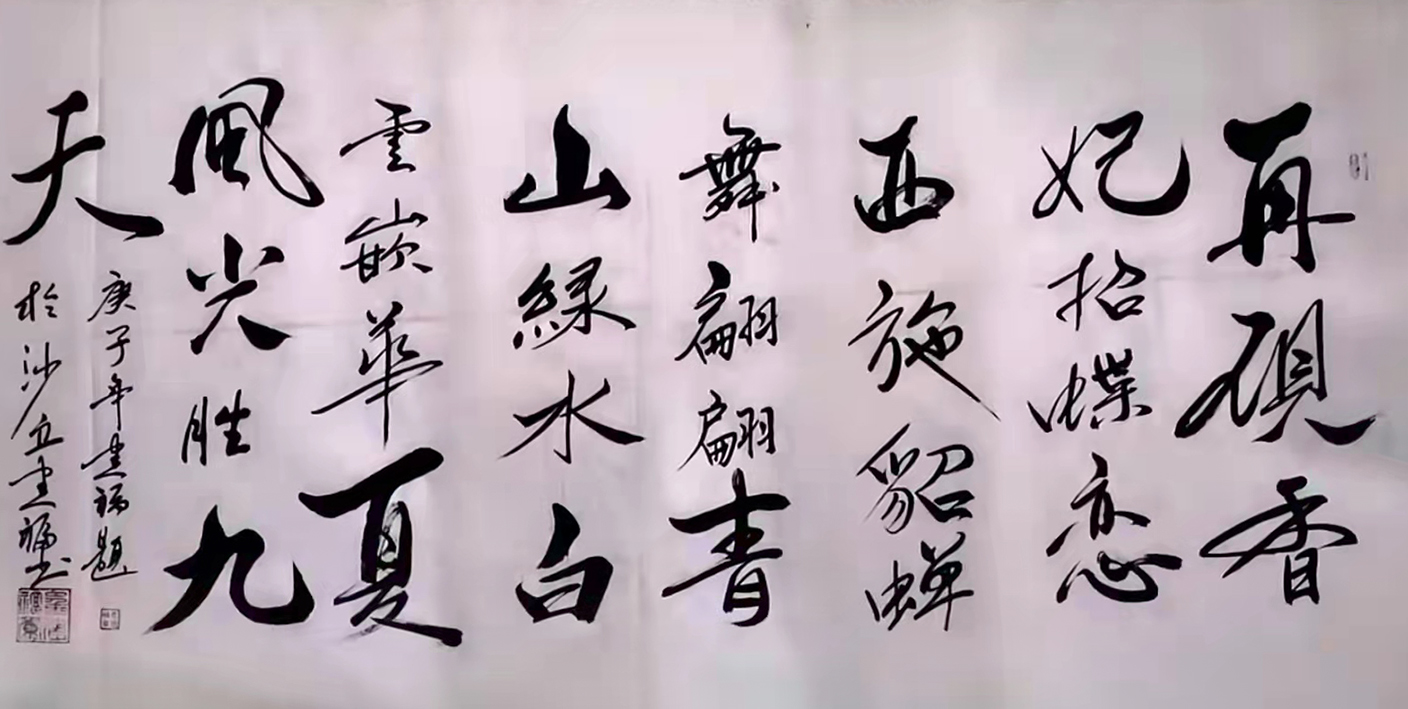 再碩香
妃招蝶恋
西施貂蝉
舞翩翩青
山緑水白
雲嵌華夏
風光胜九
天
庚子年建福题
於沙丘建福书